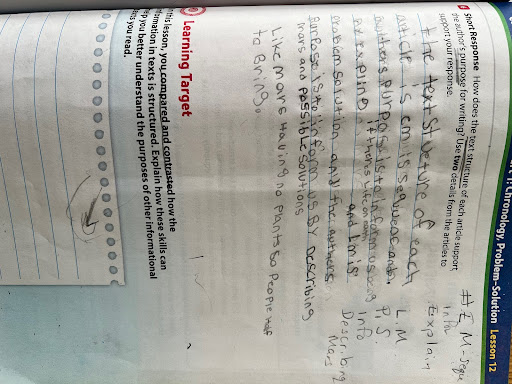 1: Chronology, Problem–Solution Lesson 12
Short Response How does the text structure of each article support
the author's purpose for writing? Use two details from the articles to
support your response.
# E M-seque
Info
Explain
L.M
P.S.
Info
Describing
Mars
the text Stucture of each
article is em is sequence and
authers purpose is to inform us
By explaing if theres Life on earth
and Lm is
problem solution and the authers
Purpose is to inform us BY Describing
mars and possible solutions
Like mars Having no plants so people Haf
to Bring.
Learning Target
In this lesson, you compared and contrasted how the
information in texts is structured. Explain how these skills can
help you better understand the purposes of other informational
texts you read.